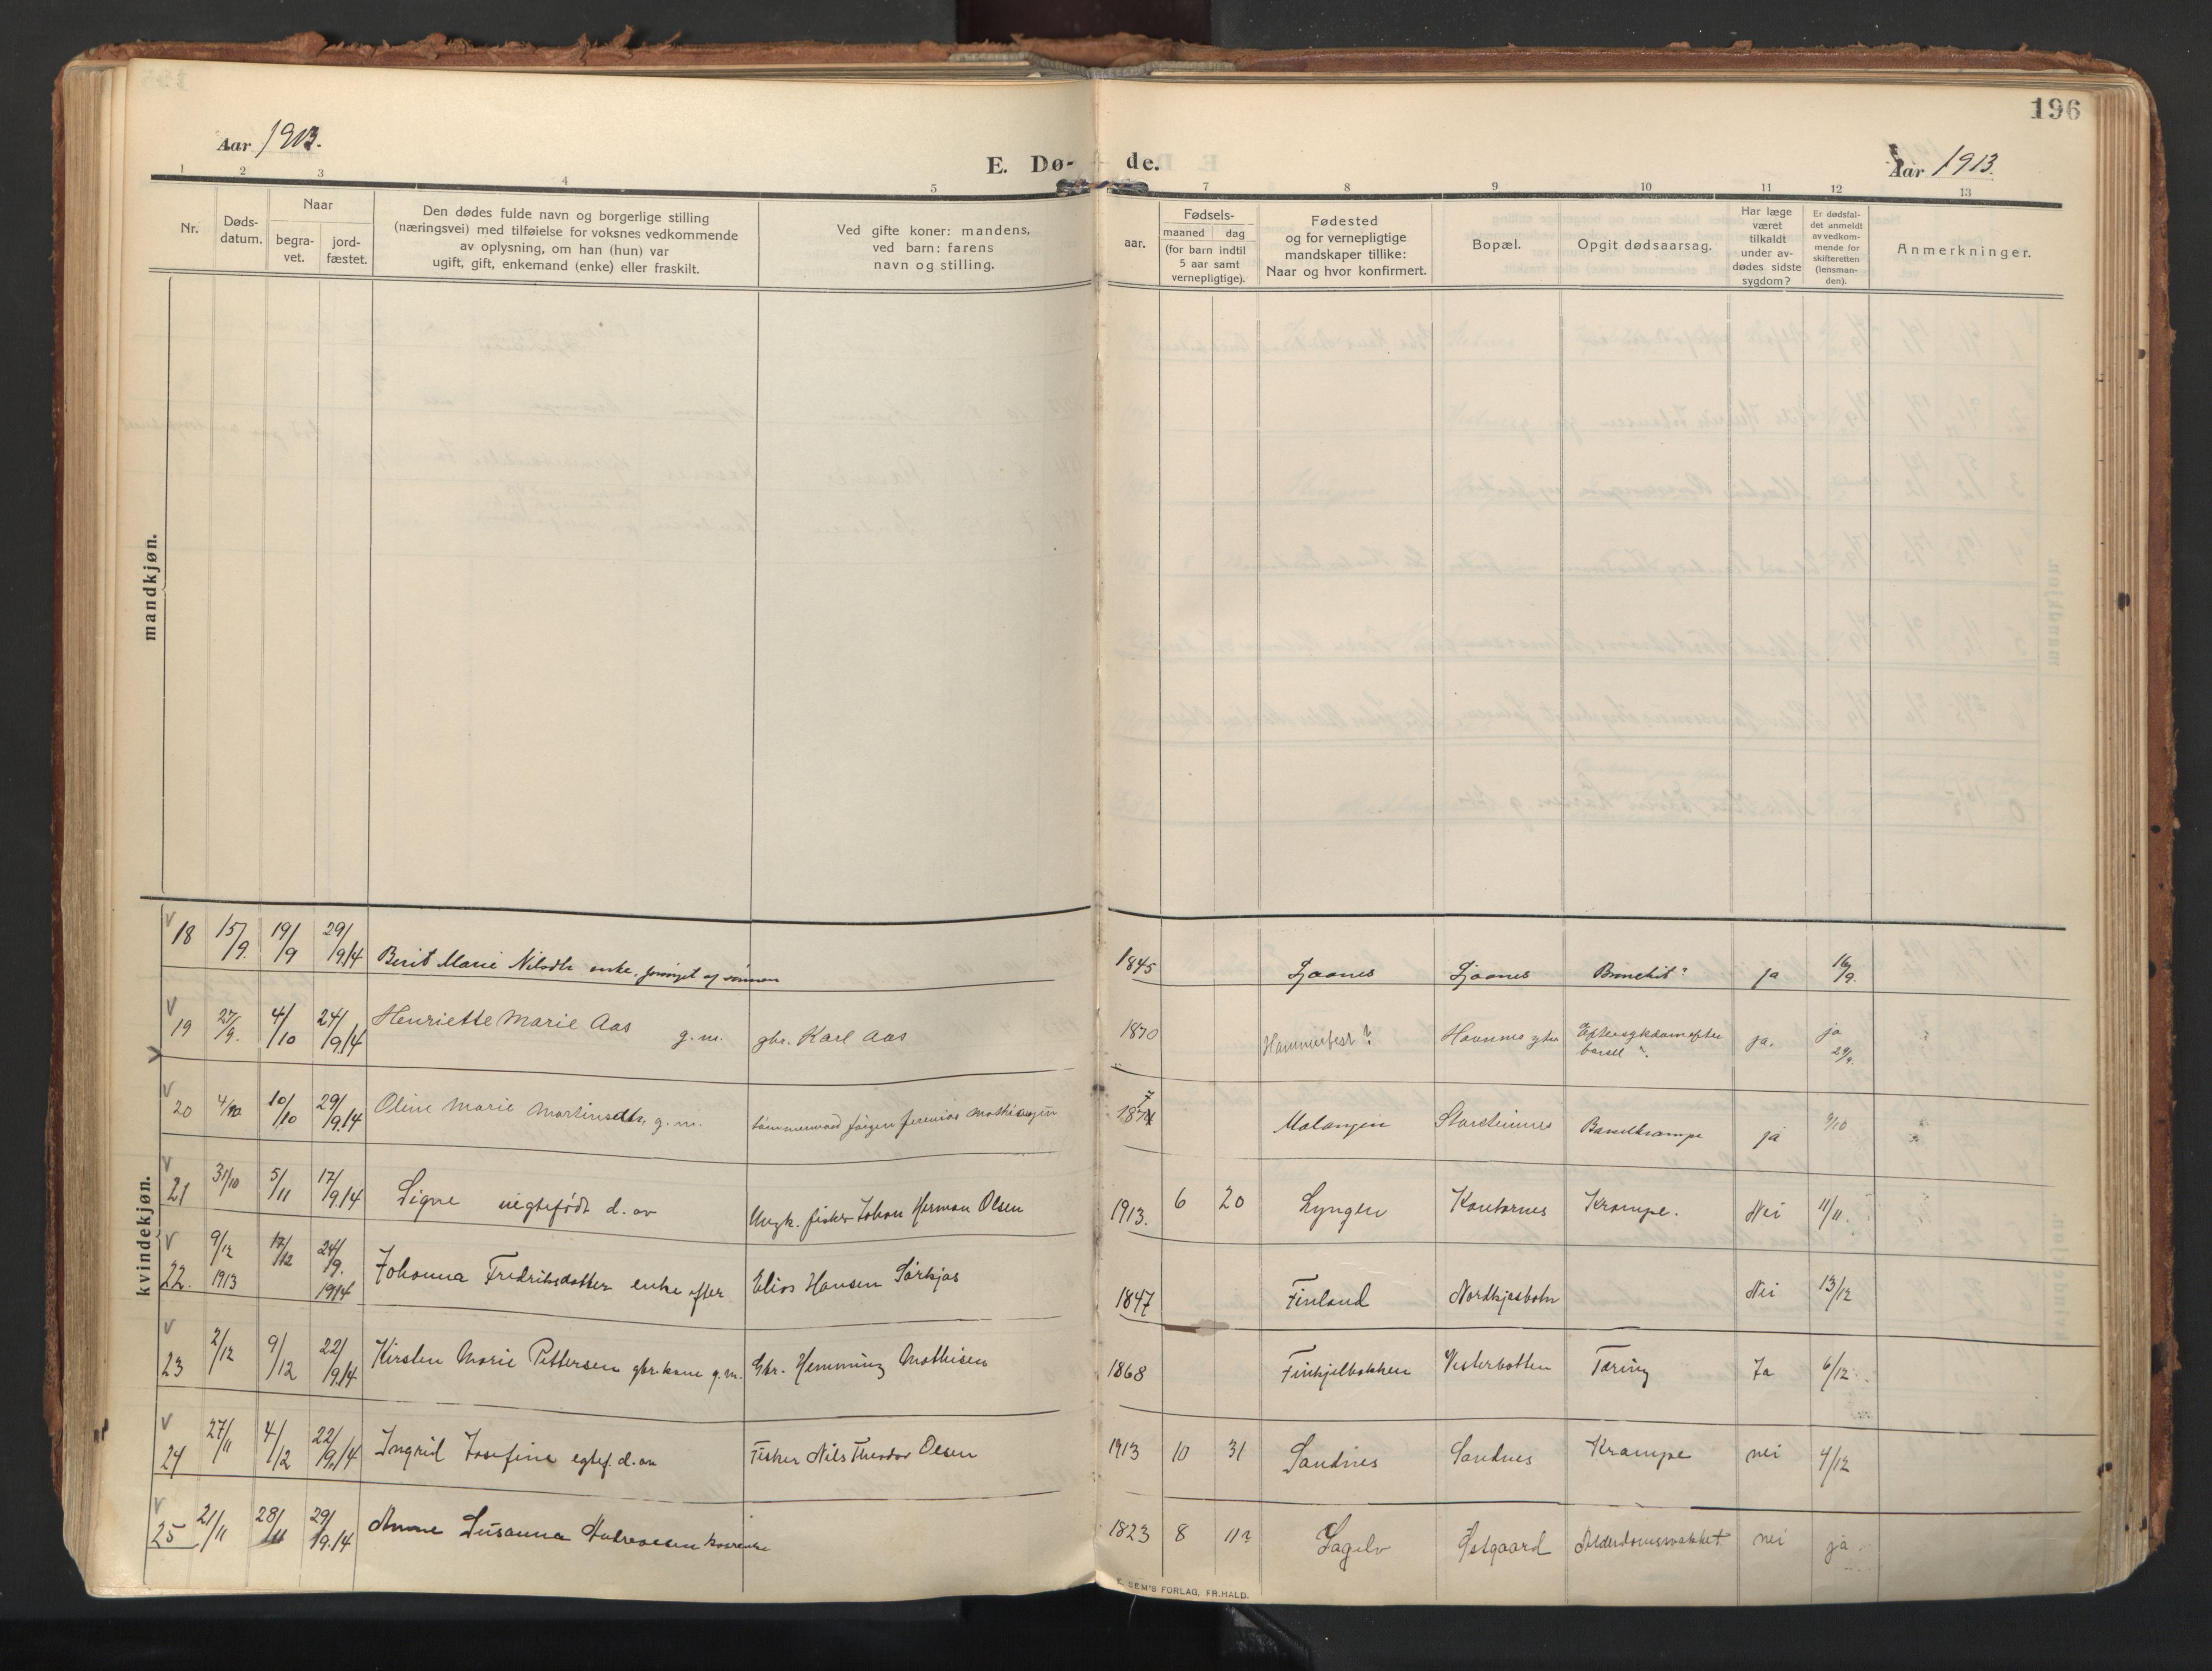 196
Aar 1913.
E. Dø- de.
Aar 1913.
1 2 3 4 5 7 8 9 10 11 12 13
Nr.
Døds-
datum.
Naar
begra-
vet.
jord-
fæstet.
Den dødes fulde navn og borgerlige stilling
(næringsvei) med tilføielse for voksnes vedkommende
av oplysning, om han (hun) var
ugift, gift, enkemand (enke) eller fraskilt.
Ved gifte koner: mandens,
ved barn: farens
navn og stilling.
aar.
Fødsels-
maaned dag
(for barn indtil
5 aar samt
vernepligtige).
Fødested
og for vernepligtige
mandskaper tillike:
Naar og hvor konfirmert.
Bopæl.
Opgit dødsaarsag.
Har læge
været
tilkaldt
under av-
dødes sidste
sygdom?
Er dødsfal-
det anmeldt
av vedkom-
mende for
skifteretten
(lensman-
den).
Anmerkninger.
mandkjøn.
kvindekjøn.
18 15/9. 19/9 29/9.14 Berit Marie Nilsdtr enke, forsørget af sønnen 1845 ja 16/9.
19 27/9. 4/10 24/9.14 Henriette Marie Aas g.m. gbr. Karl Aas 1870 Hammerfest? ja. ja 29/9.
20 4/10 10/10 29/9.14 Oline Marie Martinsdtr, g.m. Mathiassen Malangen Storsteinnes Barselkrampe ja 9/10
21 31/10 5/11 17/9.14 Signe uegtefødt d. av Ungk. fisker Johan Herman Olsen 1913. 6 20 Lyngen Kantornes Krampe. Nei 11/11.
22. 9/12 1913 17/12 24/9. 1914 Johanna Fredriksdatter enke efter Elias Hansen Sørkjos 1847 Finland Nordkjosbotn Nei 13/12
23 2/12 9/12 22/9.14 Kirsten Marie Pettersen gbr.kone g.m. Gbr. Hemming Mathisen 1868 Vesterbotten Tæring Ja 6/12.
24 27/11 4/12 22/9.14 Ingrid Josefine egtef. d. av Fisker Nils Theodor Olsen 1913 10 31 Sandnes Sandnes Krampe nei 4/12
25 21/11 28/11 29/9.14 Anne Susanna 1823 8 11? Sagelv Østgaard Alderdomssvakhet nei ja
E. SEM'S FORLAG, FR.HALD.